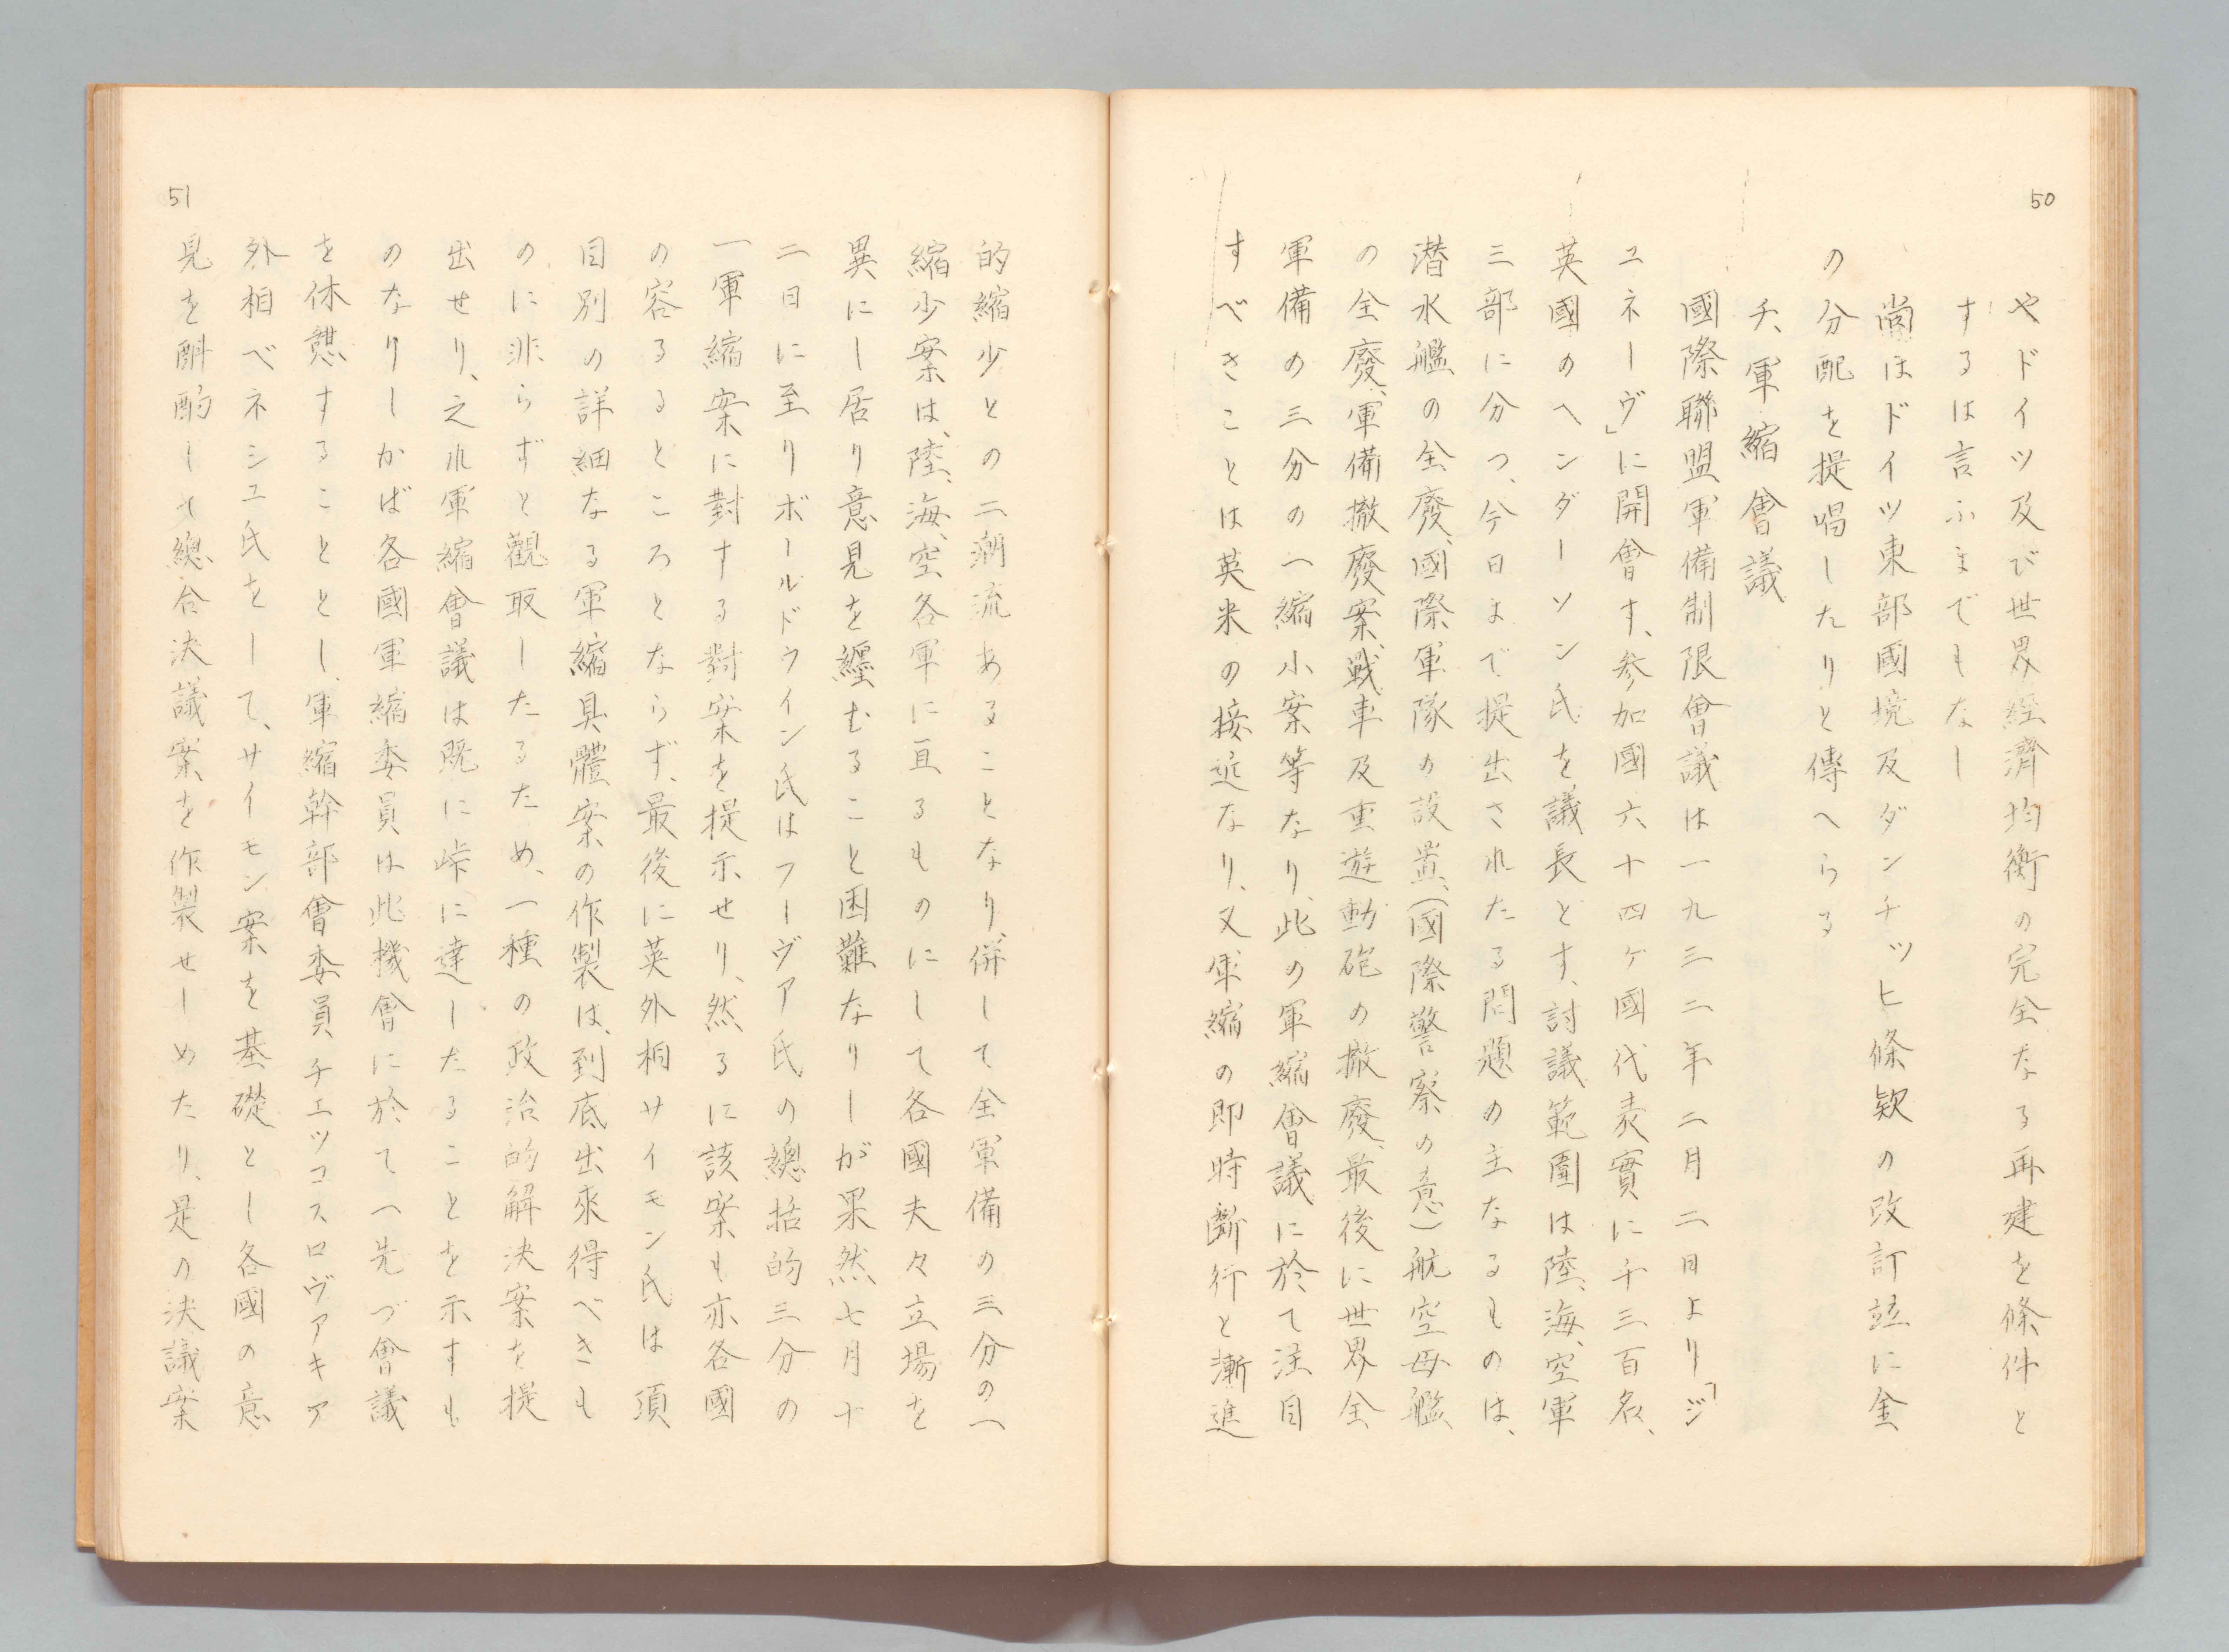 50
やドイツ及び世界経濟均衡の完全なる再建を條件と
するは言ふまでもなし
尚ほドイツ東部國境及ダンチツヒ條欵の改訂竝に金
の分配を提唱したりと傳へらる
チ、軍縮會議
國際聯盟軍備制限會議は一九三二年二月二日より「ジ
ユネーヴ」に開會す、参加國六十四ヶ國代表實に千三百名、
英國のヘンダーソン氏を議長とす、討議範圍は陸、海、空軍
三部に分つ、今日まで提出されたる問題の主なるものは、
潜水艦の全廢、國際軍隊の設置、(國際警察の意)航空母艦
の全廢、軍備撤廢案、戰車及重遊動砲の撤廢、最後に世界全
軍備の三分の一縮小案等なり、此の軍縮會議に於て注目
すべきことは英米の接近なり、又軍縮の即時斷行と漸進
51
的縮少との二潮流あることなり、併して全軍備の三分の一
縮少案は、陸、海、空各軍に亘るものにして各國夫々立場を
異にし居り意見を纒むること困難なりしが果然七月十
二日に至りボールドウイン氏はフーヴア氏の總括的三分の
一軍縮案に對する對案を提示せり、然るに該案も亦各國
の容るるところとならず、最後に英外相サイモン氏は須
目別の詳細なる軍縮具體案の作製は、到底出來得べきも
のに非らずと觀取したるため、一種の政治的解決案を提
出せり、之れ軍縮會議は既に峠に達したることを示すも
のなりしかば各國軍縮委員は此機會に於て一先づ會議
を休憩することとし、軍縮幹部會委員チエツコスロヴアキア
外相ベネシユ氏をして、サイモン案を基礎とし各國の意
見を酙酌して總合決議案を作製せしめたり、是の決議案